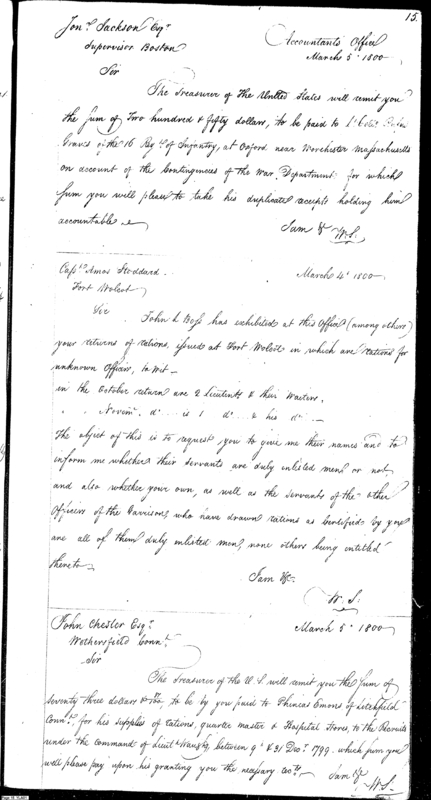 15.
Jonª Jackson Esqr
Supervisor Boston
Accountants Office
March 5th 1800
Sir
The Treasurer of the United States will remit you
the sum of Two hundred & fifty dollars, to be paid to Lt Colo.
Graves of the 16 Regt of Infantry, at Oxford near Worchester Massachusetts
on account of the Contingencies of the War Department for which
sum you will please to take his duplicate receipts holding him
accountable
I am &c
W.S.
Capt Amos Stoddard
March 4th 1800
Fort Wolcot
Sir
John L Boss has exhibited at this Office (among others)
your returns of rations, issued at Fort Wolcot in which are rations for
unknown Officers, to Wit
in the October return are 2 lieutents & their Waiters.
" " Novemr do is 1 do & his do
The object of this is to request you to give me their names and to
inform me whether their servants are duly enlisted men or not
and also whether your own, as well as the servants of the other
Officers of the Garrison, who have drawn rations as Certified by you
are all of them duly enlisted men, none others being entitled
thereto
I am &c
W. S.
John Chester Esqr
March 5th 1800
Wethersfield Connt
Sir
The Treasurer of the U.S. will remit you the sum of
seventy three dollars & to be by you paid to Phineas Emons of Litchfield
Connt, for his supplies of rations, quarter master & Hospital stores, to the Recruits
under the command of Lieut between 9th & 31 Decr 1799. which sum you
will please pay upon his granting you the necessary
I am &c
W.S.